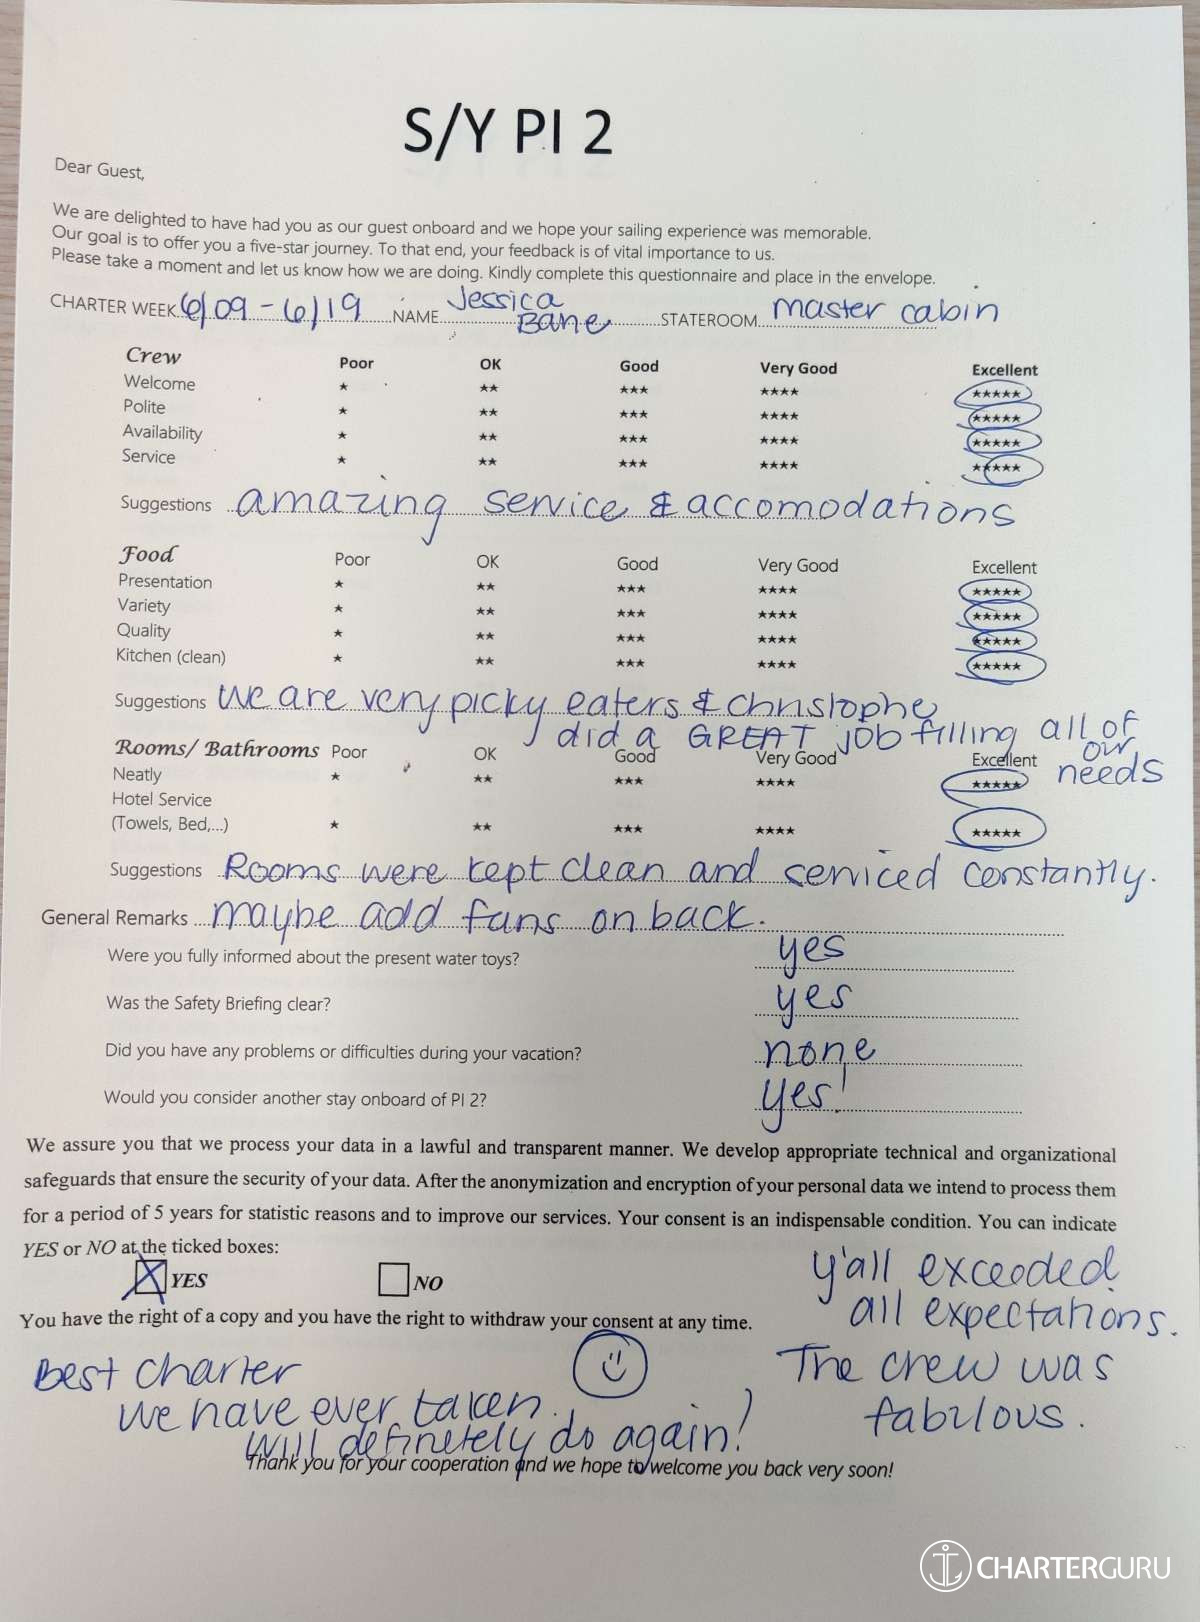 S/Y PI 2
Dear Guest,
We are delighted to have had you as our guest onboard and we hope your sailing experience was memorable.
Our goal is to offer you a five-star journey. To that end, your feedback is of vital importance to us.
Please take a moment and let us know how we are doing. Kindly complete this questionnaire and place in the envelope.
CHARTER WEEK 6/09 - 6/19 NAME Jessica Bane STATEROOM master cabin
Crew Poor OK Good Very Good Excellent
Welcome ★ ★★ ★★★ ★★★★ ★★★★★
Polite ★ ★★ ★★★ ★★★★ ★★★★★
Availability ★ ★★ ★★★ ★★★★ ★★★★★
Service ★ ★★ ★★★ ★★★★ ★★★★★
Suggestions amazing service & accomodations
Food Poor OK Good Very Good Excellent
Presentation ★ ★★ ★★★ ★★★★ ★★★★★
Variety ★ ★★ ★★★ ★★★★ ★★★★★
Quality ★ ★★ ★★★ ★★★★ ★★★★★
Kitchen (clean) ★ ★★ ★★★ ★★★★ ★★★★★
Suggestions we are very picky eaters & christophe
did a GREAT job filling all of our needs
Rooms/ Bathrooms Poor OK Good Very Good Excellent
Neatly ★ ★★ ★★★ ★★★★ ★★★★★
Hotel Service
(Towels, Bed,...) ★ ★★ ★★★ ★★★★ ★★★★★
Suggestions Rooms were kept clean and serviced constantly.
General Remarks maybe add fans on back.
Were you fully informed about the present water toys? yes
Was the Safety Briefing clear? yes
Did you have any problems or difficulties during your vacation? none
Would you consider another stay onboard of PI 2? yes!
We assure you that we process your data in a lawful and transparent manner. We develop appropriate technical and organizational
safeguards that ensure the security of your data. After the anonymization and encryption of your personal data we intend to process them
for a period of 5 years for statistic reasons and to improve our services. Your consent is an indispensable condition. You can indicate
YES or NO at the ticked boxes:
YES NO
You have the right of a copy and you have the right to withdraw your consent at any time.
y'all exceeded
all expectations.
The crew was
fabulous.
Best charter
we have ever taken.
Will definetely do again!
Thank you for your cooperation and we hope to welcome you back very soon!
CHARTERGURU